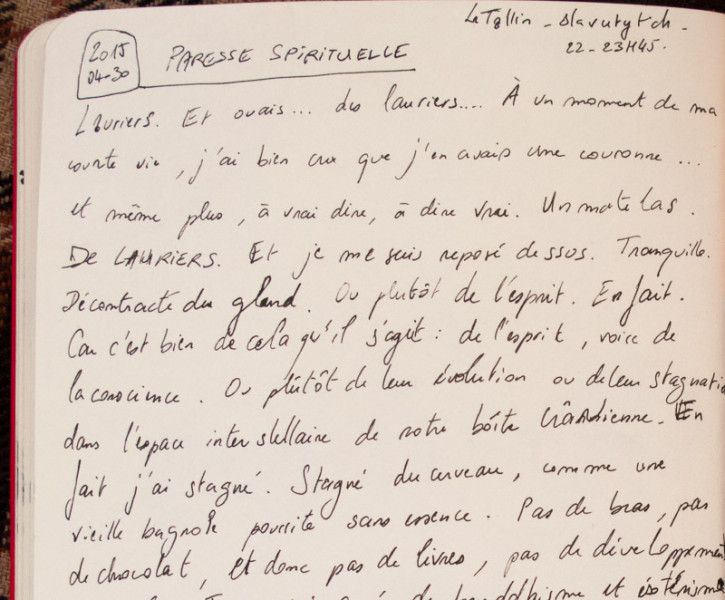 Le Tallin - Slavutytch -
22 - 23H45.
2015
04-30
PARESSE SPIRITUELLE
Lauriers. Et ouais... des lauriers.... À un moment de ma
courte vie, j'ai bien cru que j'en avais une couronne ...
et même plus, à vrai dire, à dire vrai. Un matelas.
DE LAURIERS. Et je me suis reposé dessus. Tranquille.
Décontracte du gland. Ou plutôt de l'esprit. En fait.
Car c'est bien de cela qu'il s'agit : de l'esprit, voire de
la conscience. Ou plutôt de leur évolution ou de leur stagnatio
dans l'espace interstellaire de notre boîte crânienne. En
fait j'ai stagné. Stagné du cerveau, comme une
vieille bagnole pourrite sans essence. Pas de bras, pas
de chocolat, et donc pas de livres, pas de développement
de bouddhisme et ésotérisme